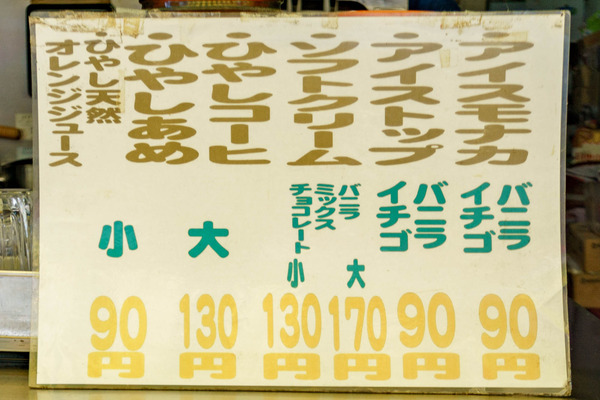 アイスモナカ
アイストップ
ソフトクリーム
ひやしコーヒ
ひやしあめ
ひやし天然
オレンジジュース
バニラ
イチゴ
バニラ
イチゴ
バニラ
ミックス
チョコレート
大
小
大
小
90円
90円
170円
130円
130円
90円